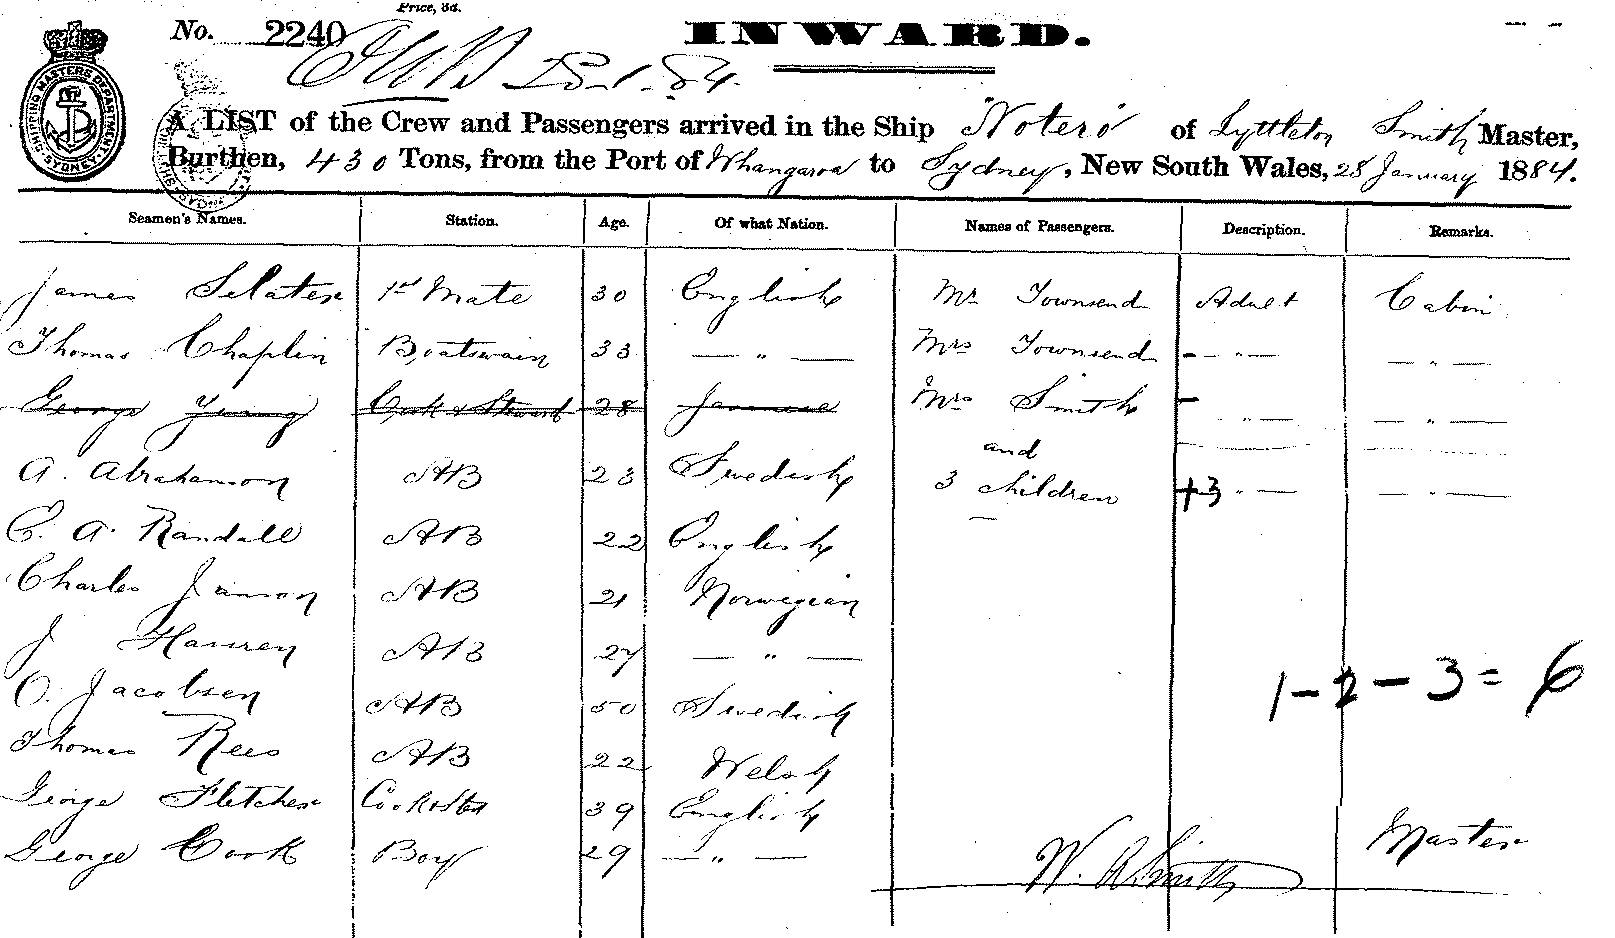 Price, 3d.
No. 2240 INWARD.
28.1.84.
A LIST of the Crew and Passengers arrived in the Ship "Notero" of Lyttleton Smith Master,
Burthen, 430 Tons, from the Port of Whangaroa to Sydney, New South Wales, 28 January 1884.
Seamen's Names. Station. Age. Of what Nation. Names of Passengers. Description. Remarks.
James Selater 1st Mate 30 English Mr Townsend Adult Cabin
Thomas Chaplin Boatswain 33 — " — Mrs Townsend - — " — — " —
George Young Cook & Steward 28 Mrs Smith - — " — — " —
and
A. Abrahamson AB 23 Swedish 3 children +3 " — — " —
C. A. Randall AB 22 English
Charles AB 21 Norwegian
J Hansen AB 27 — " —
1 - 2 - 3 = 6
O. Jacobsen AB 50 Swedish
Thomas Rees AB 22 Welsh
George Fletcher Cook & Std 39 English
George Cook Boy 29 — " —
W. A Smith Master